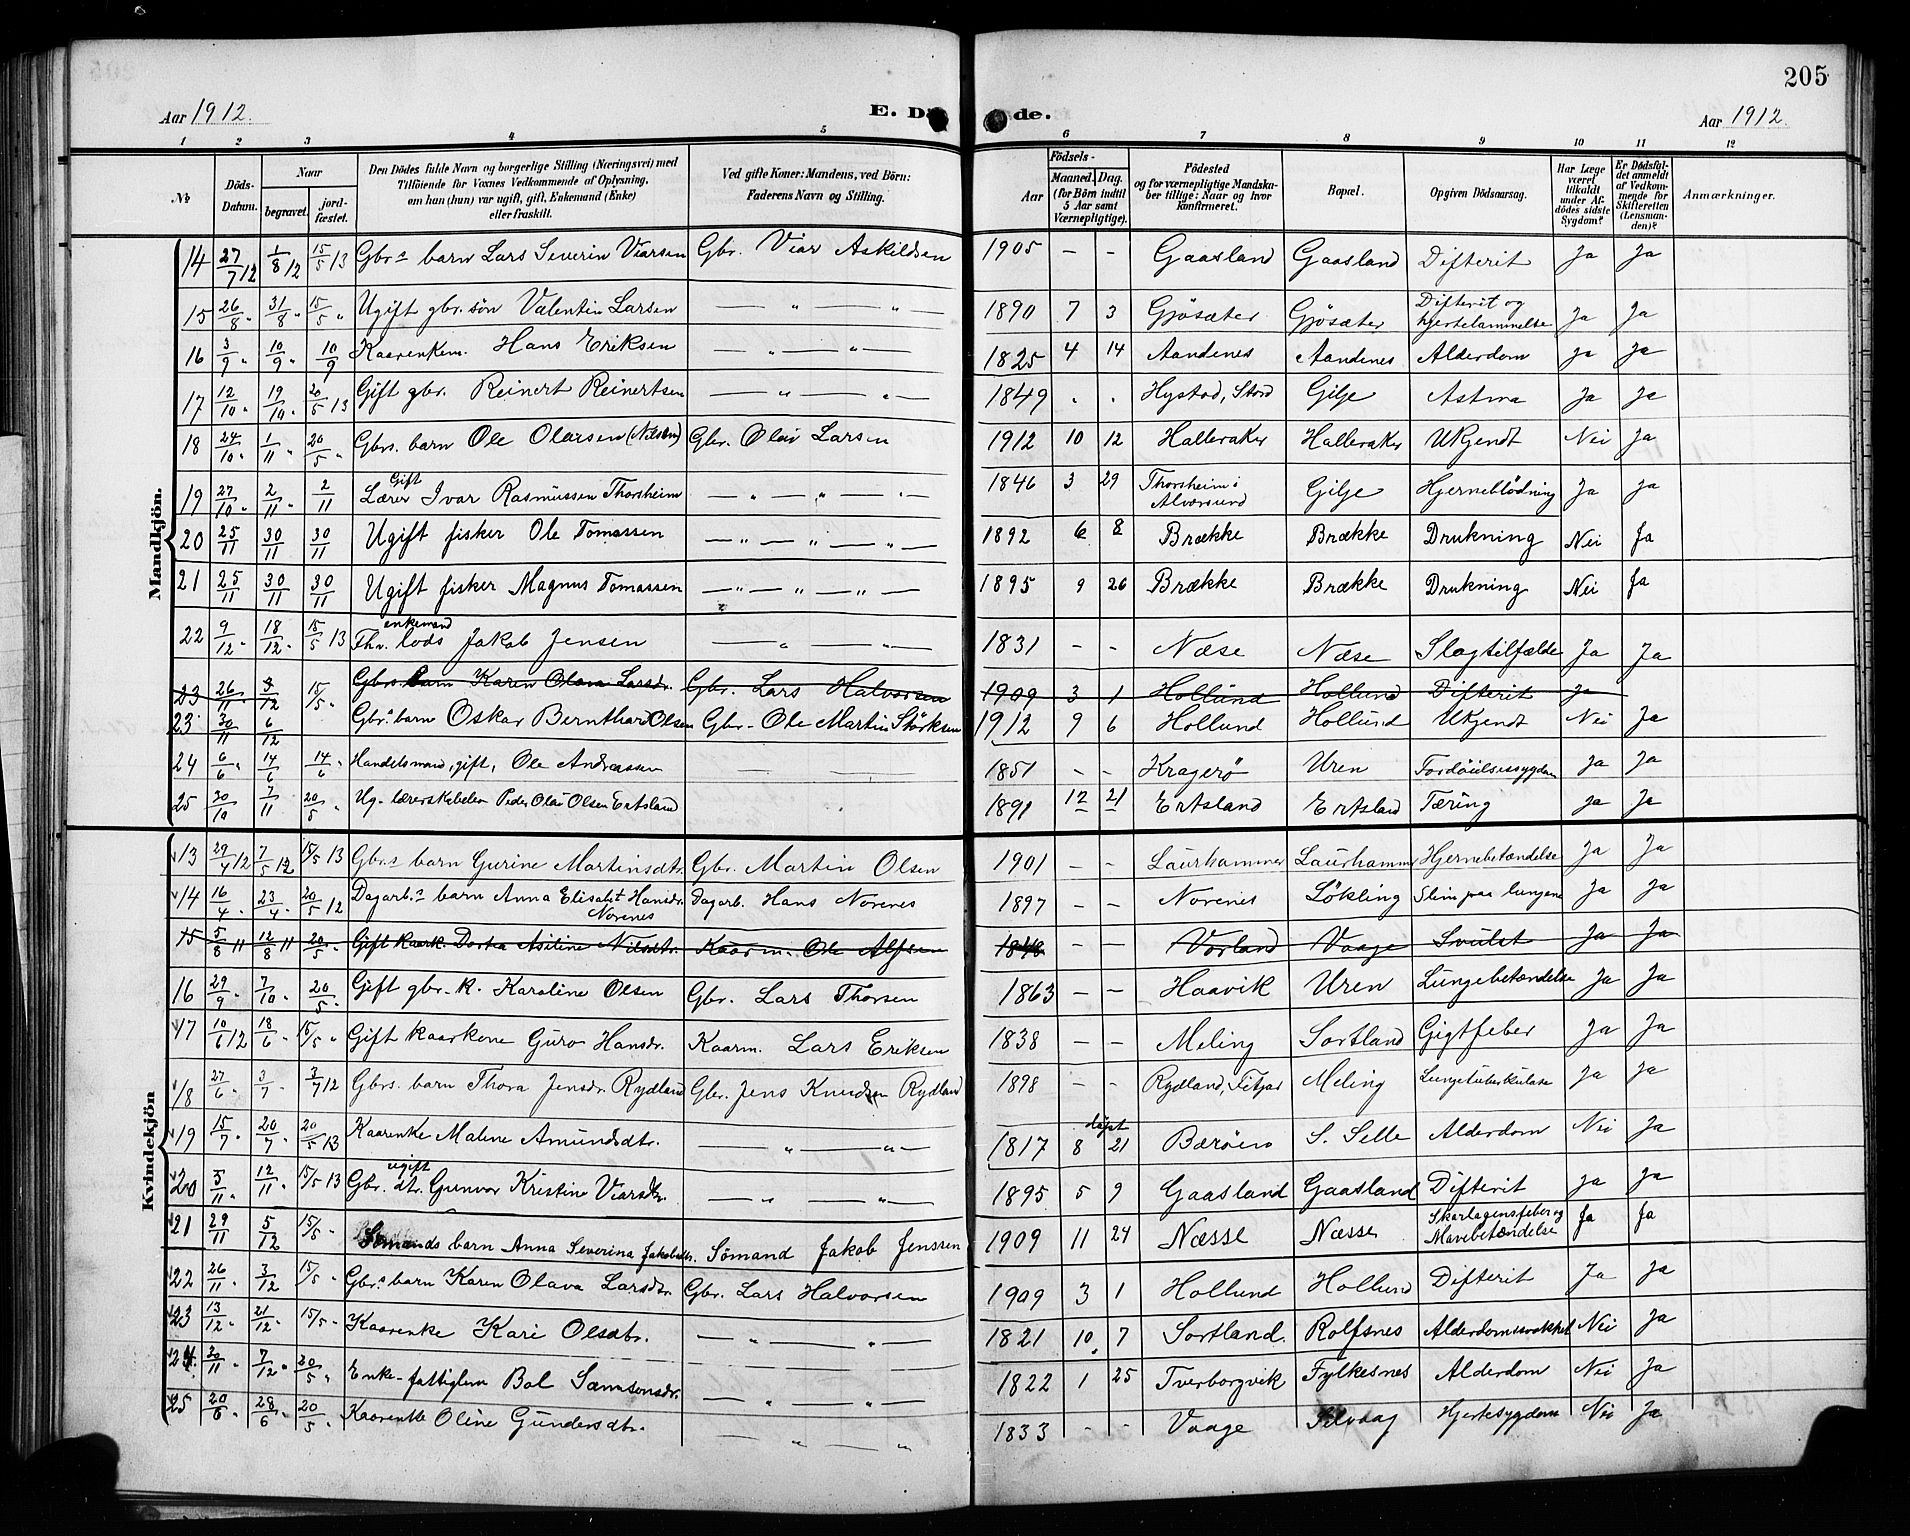 205
Aar 1912. E. Dö de. Aar 1912.
1 2 3 4 5 6 7 8 9 10 11 12
№ Döds-Datum. Naar begravet. jordfæstet. Den Dödes fulde Navn og borgerlige Stilling (Næringsvei) med Tilföiende for Voxnes Vedkommende af Oplysning, om han (hun) var ugift, gift, Enkemand (Enke) eller fraskilt. Ved gifte Koner: Mandens, ved Börn: Faderens Navn og Stilling. Födsels- Aar Maaned. Dag. (for Börn indtil 5 Aar samt Værnepligtige). Födested og for værnepligtige Mandskaber tillige: Naar og hvor konfirmeret. Bopæl. Opgiven Dödsaarsag. Har Læge været tilkaldt under Afdödes sidste Sygdom? Er Dödsfaldet anmeldt af Vedkommende for Skifteretten (Lensmanden)? Anmærkninger.
Mandkjön.
14 27/7 12 1/8 12 15/5 13 Gbrs barn Lars Severin Viarsen Gbr. Viar Askildsen 1905 – – Gaasland Gaasland Difterit Ja Ja
15 26/8 " 31/8 " 15/5 " Ugift gbr. søn Valentin Larsen — " — " — 1890 7 3 Gjøsæter Gjøsæter Difterit og hjertelammelse Ja Ja
16 3/9 " 10/9 " 10/9 Kaarenkem. Hans Eriksen — " — " — 1825 4 14 Aandenes Aandenes Alderdom Ja Ja
17 12/10 " 19/10 " 20/5 13 Gift gbr. Reinert Reinertsen — " — " — 1849 . . Hystad, Stord Gilje Astma Ja Ja
18 24/10 " 1/11 " 20/5 " Gbrs. barn Ole Olaisen (Nilsen) Gbr. Olai Larsen 1912 10 12 Halleraker Halleraker Ukjendt Nei Ja
19 27/10 " 2/11 " 2/11 Gift Lærer Ivar Rasmussen Thorsheim — " — " — " — 1846 3 29 Thorsheim i Alversund Gilje Hjerneblødning Ja Ja
20 25/11 30/11 30/11 Ugift fisker Ole Tomassen — " — " — " — 1892 6 8 Brække Brække Drukning Nei Ja
21 25/11 30/11 30/11 Ugift fisker Magnus Tomassen — " — " — " — 1895 9 26 Brække Brække Drukning Nei Ja
22 9/12 " 18/12 " 15/5 13 Fhv. enkemand lods Jakob Jensen — " — " — 1831 – – Næse Næse Slagtilfælde Ja Ja
23 26/11 3/12 15/5 " Gbrs. barn Karen Olava Larsdr. Gbr. Lars Halvorsen 1909 3 1 Hollund Hollund Difterit Ja
23 30/11 6/12 Gbrs barn Oskar Bernthard Olsen Gbr. Ole Martin Störksen 1912 9 6 Hollund Hollund Ukjendt Nei Ja
24 6/6 " 14/6 14/6 " Handelsmand, gift, Ole Andreassen — — — 1851 – – Kragerø Uren Fordøielsessygdom Ja Ja
25 30/10 7/11 20/5 " Ug. lærerskoleelev Peder Olai Olsen Ertsland 1891 12 21 Ertsland Ertsland Tæring Ja Ja
Kvindekjön
13 29/4 12 7/5 12 15/5 13 Gbrs barn Gurine Martinsdtr. Gbr. Martin Olsen 1901 – – Laurhammer Laurhammer Hjernebetændelse Ja Ja
14 16/4 " 23/4 " 20/5 12 Dagarb.s barn Anna Elisabet Hansdr. Norenes Dagarb. Hans Norenes 1897 – – Norenes Løkling Slim paa lungene Ja Ja
15 5/8 11 12/8 11 20/5 " Gift kaark. Dortea Asiline Nilsdtr. Kaarm. Ole Alfsen 1848 – – Vorland Vaage Svulst Ja Ja
16 29/9 " 7/10 " 20/5 " Gift gbr. k. Karoline Olsen Gbr. Lars Thorsen 1863 – – Haavik Uren Lungebetændelse Ja Ja
17 10/6 12 18/6 " 15/5 " Gift kaarkone Guro Hansdr. Kaarm. Lars Eriksen 1838 – – Meling Sortland Gigtfeber Ja Ja
18 27/6 " 3/7 " 3/7 12 Gbrs. barn Thora Jensdr. Rydland Gbr. Jens Knudsen Rydland 1898 – – Rydland, Fitjar Meling Lungetuberkulose Ja Ja
19 15/7 " 20/7 " 20/5 13 Kaarenke Malene Amundsdtr. — " — " — 1817 døpt 8 21 Bærøen S. Selle Alderdom Nei Ja
20 5/11 " 12/11 " 15/5 13 Gbr. ugift dtr. Gunvor Kristine Viarsdtr. — " — " — 1895 5 9 Gaasland Gaasland Difterit Ja Ja
21 29/11 5/12 15/5 " Sømands barn Anna Severina Jakobsdtr. Sømand Jakob Jenssen 1909 11 24 Næsse Næsse Skarlagensfeber og Mavebetændelse Ja Ja
22 26/11 " 3/12 15/5 " Gbrs barn Karen Olava Larsdtr. Gbr. Lars Halvorsen 1909 3 1 Hollund Hollund Difterit Ja Ja
23 13/12 " 21/12 " 15/5 " Kaarenke Kari Olsdtr. — " — " — 1821 10 7 Sortland Rolfsnes Alderdomssvakhet Nei Ja
24 30/11 " 7/12 " 20/5 " Enke-fattiglem Bol Samsonsdr. — " — " — 1822 1 25 Tverborgvik Fylkesnes Alderdom Nei Ja
25 20/6 " 28/6 " 20/5 " Kaarenke Oline Gundersdtr. — " — " 1833 – – Vaage Selvaag Hjertesygdom Nei Ja